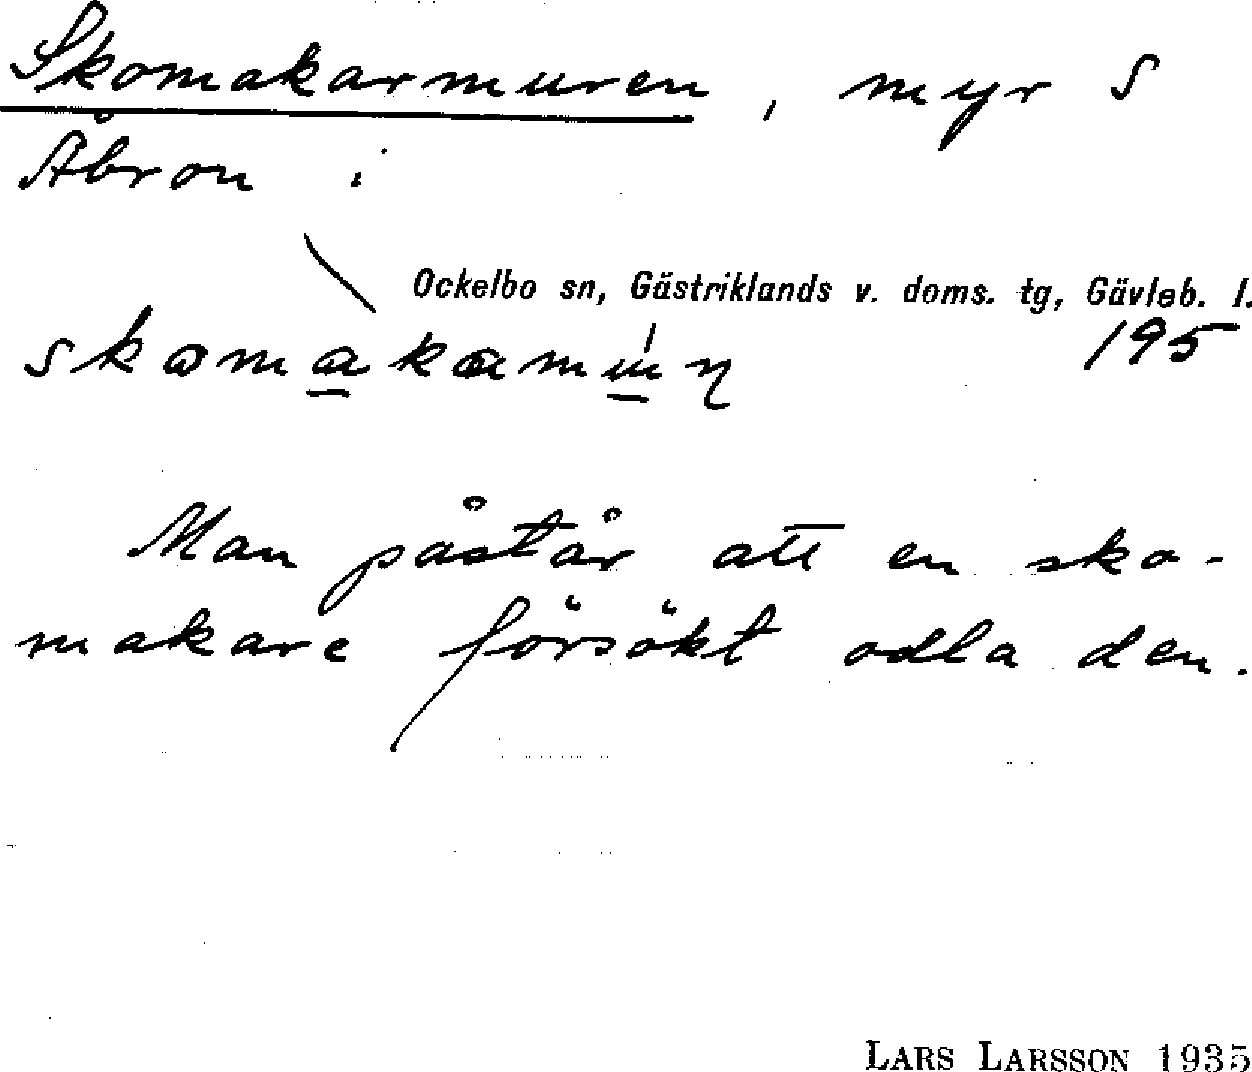 Skomakarmuren, myr S
Åbron i
Ockelbo sn, Gästriklands v. doms. tg, Gävleb. l.
195
Man påstår att en sko-
makare försökt odla den.
LARS LARSSON 1935